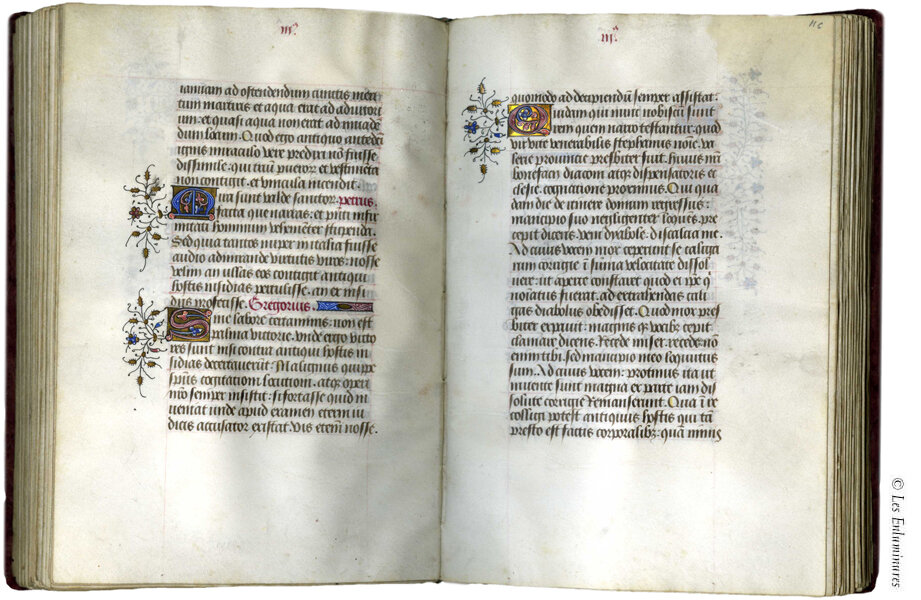 iij.
ianuam ad ostendendum cunctis meri
tum martiris et aqua erat ad adiutori
um: et quasi aqua non erat ad inuade
dum locum. Quod ergo antiquo antedicti
ignis miraculo vere predixi nō fuisse
dissimile. qui trium pueror et vestimēta
non contigit. et vincula incendit.
Mira sunt valde sanctor. petrus.
facta que narras: et pn̄ti infir
mitati hominum vehemēter stupenda.
Sed quia tantos nuper in italia fuisse
audio admirande virtutis viros: nosse
velim an nullas eos contigit antiqui
hostis insidias pertulisse. an ex insi
diis profecisse. Gregorius
Sine labore certaminis: non est
palma victorie. vnde ergo victo
res sunt nisi contra antiqui hostis in
sidias decertauerunt: Malignus quippe
sp̄us cogitationi. locutioni. atq operi
nō semper insistit: si fortasse quid in
ueniat unde apud examen eterni iu
dicis accusator existat. Vis etenim nosse.
iij.
quomodo ad decipiendū semper assistat:
Quidam qui nunc nobiscū sunt
rem quem narro testantur. quod
vir vite venerabilis stephanus noīe. va
lerie prouincie presbiter fuit. huius nr̄i
bonefacii diaconi atq dispensatoris ec
clesie. cognatione proximus. Qui qua
dam die de itinere domum regressus:
mancipio suo negligenter loquēs. pre
cepit dicens. veni dyabole. discalcia me.
Ad cuius vocem mox ceperunt se caliga
rum corrigie ī summa velocitate dissol
uere: ut aperte constaret quod ei ip̄e q
noīatus fuerat. ad extrahendas cali
gas diabolus obedisset. Quod mox pres
biter expauit: magnisq vocibz cepit
clamare dicens. Recede miser. recede: nō
enim tibi. sed mancipio meo loquutus
sum. Ad cuius vocem: protinus ita ut
inuente sunt magna ex parte iam dis
solute corrigie remanserunt. Qua ī re
colligi potest antiquus hostis qui tā
presto est factis corporalibz: quā nimis